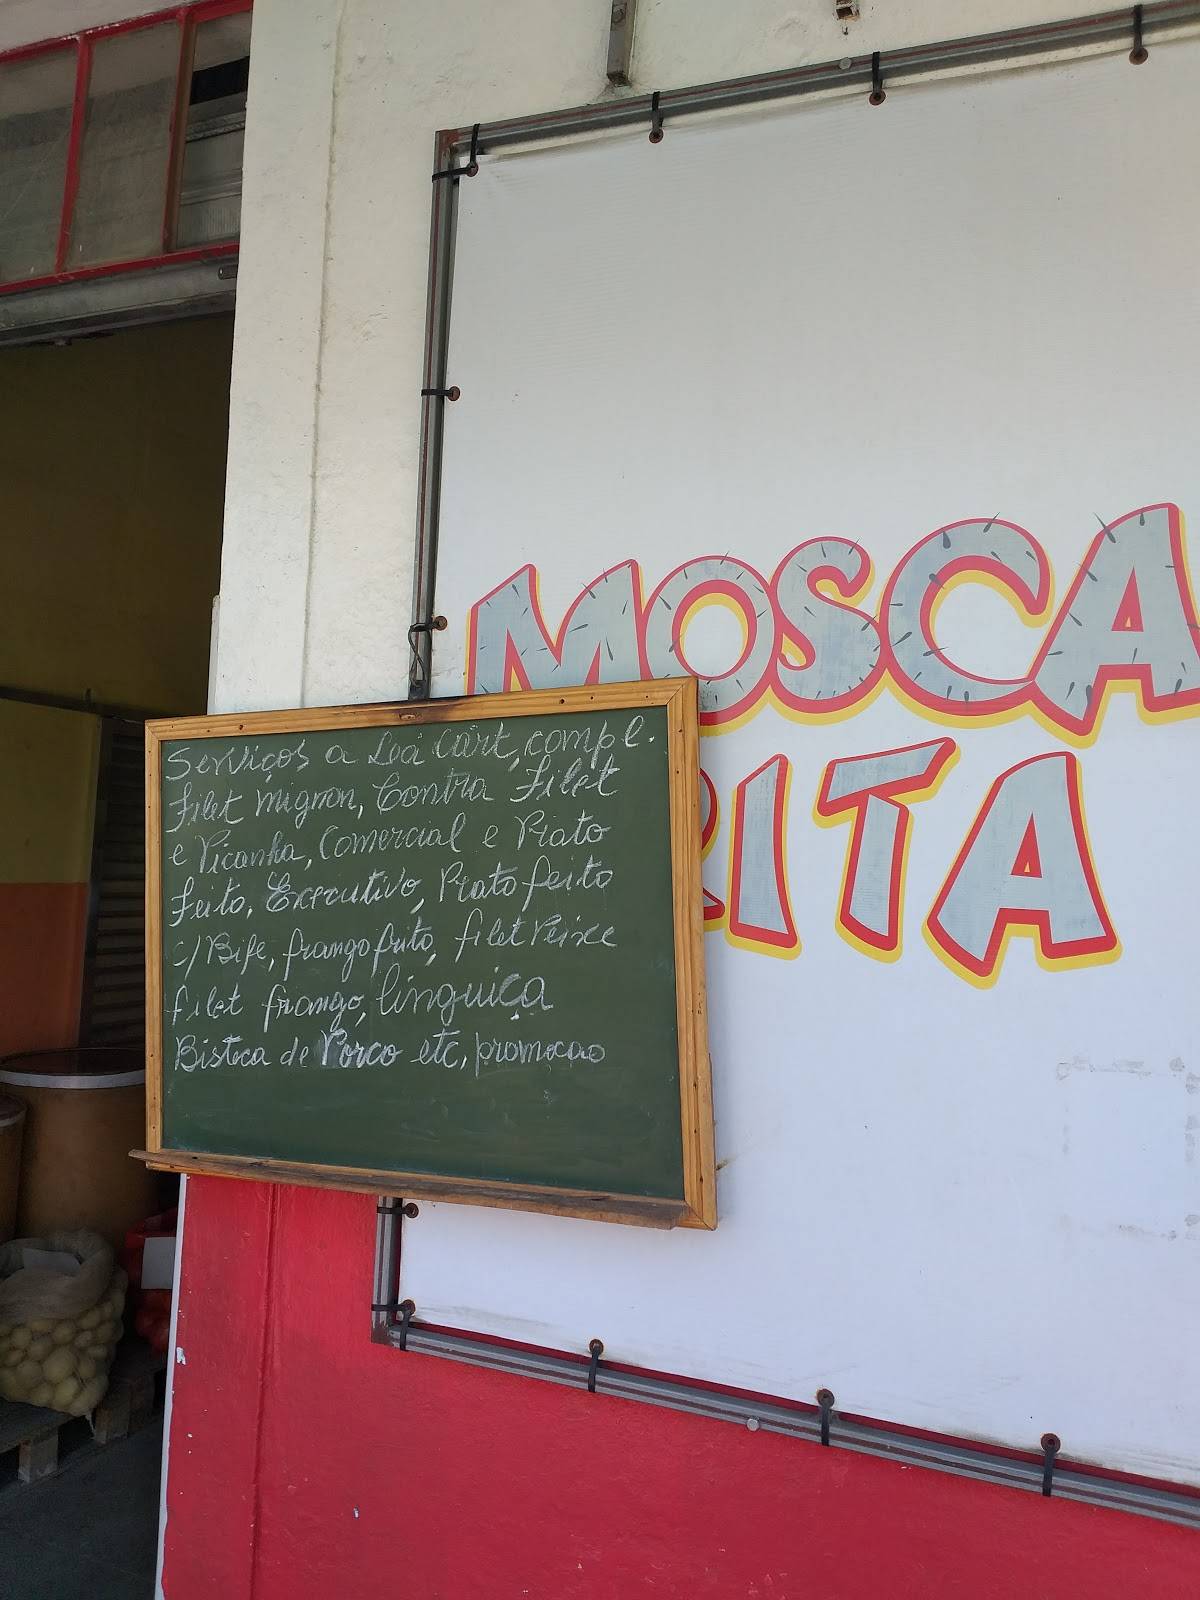 MOSCA
RITA
Serviços a Lá Cart, compl.
Filet mignon, Contra Filet
e Picanha, Comercial e Prato
Feito, Executivo, Prato feito
c/ Bife, frango frito, filet Peixe
filet frango, linguiça
Bisteca de Porco etc, promocao